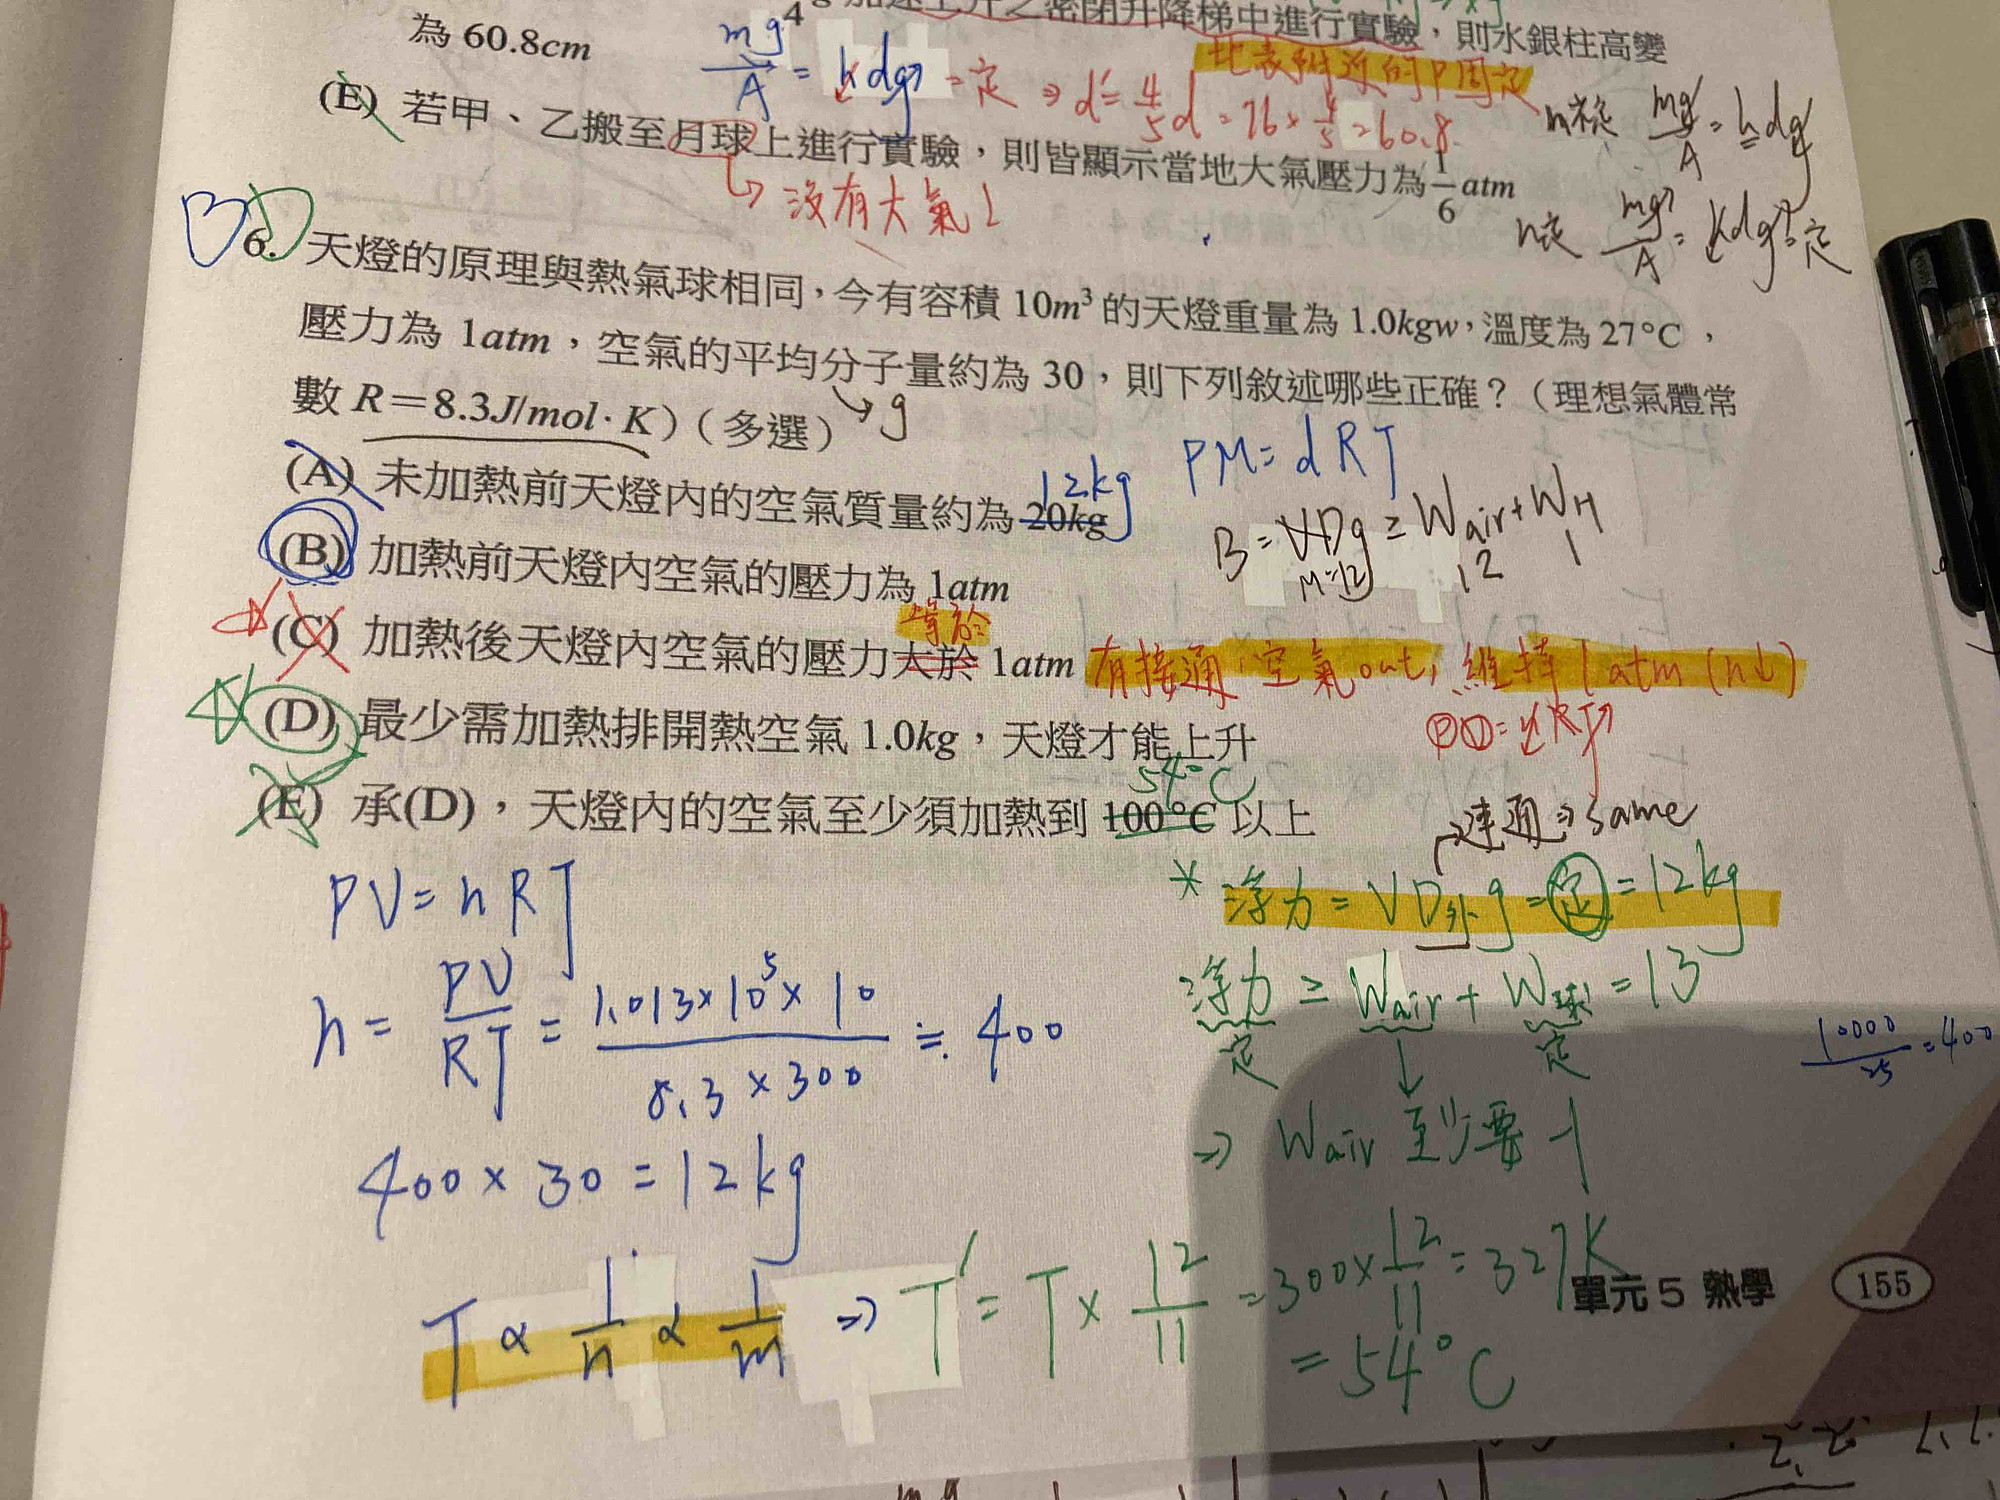 加速上升之密閉升降梯中進行實驗，則水銀柱高變
為 60.8cm
mg/A = hdg = 定 ⇒ d' = 4/5 d = 76 × 4/5 = 60.8
地表附近的P固定
(E) 若甲、乙搬至月球上進行實驗，則皆顯示當地大氣壓力為 1/6 atm
↳ 沒有大氣！
mg/A = hdg
mg/A = hdg = 定
BD
6. 天燈的原理與熱氣球相同，今有容積 10m³ 的天燈重量為 1.0kgw，溫度為 27°C，
壓力為 1atm，空氣的平均分子量約為 30，則下列敘述哪些正確？（理想氣體常
數 R＝8.3J/mol · K）（多選）
g
PM = dRT
12kg
(A) 未加熱前天燈內的空氣質量約為 20kg
B = VDg ≥ Wair + WH
M=12 12 1
(B) 加熱前天燈內空氣的壓力為 1atm
等於
(C) 加熱後天燈內空氣的壓力大於 1atm 有接通，空氣out，維持 1 atm (n↓)
PV = nRT
(D) 最少需加熱排開熱空氣 1.0kg，天燈才能上升
54°C
(E) 承(D)，天燈內的空氣至少須加熱到 100°C 以上
連通⇒same
PV = nRT
* 浮力 = VD外g = 定 = 12kg
n = PV/RT = 1.013×10⁵×10 / 8.3×300 ≒ 400
浮力 ≥ Wair + W球 = 13
定 定
10000/25 = 400
400 × 30 = 12kg
⇒ Wair 至少要 -1
T ∝ 1/n ∝ 1/m ⇒ T' = T × 12/11 = 300 × 12/11 = 327K
= 54°C
單元 5 熱學 155